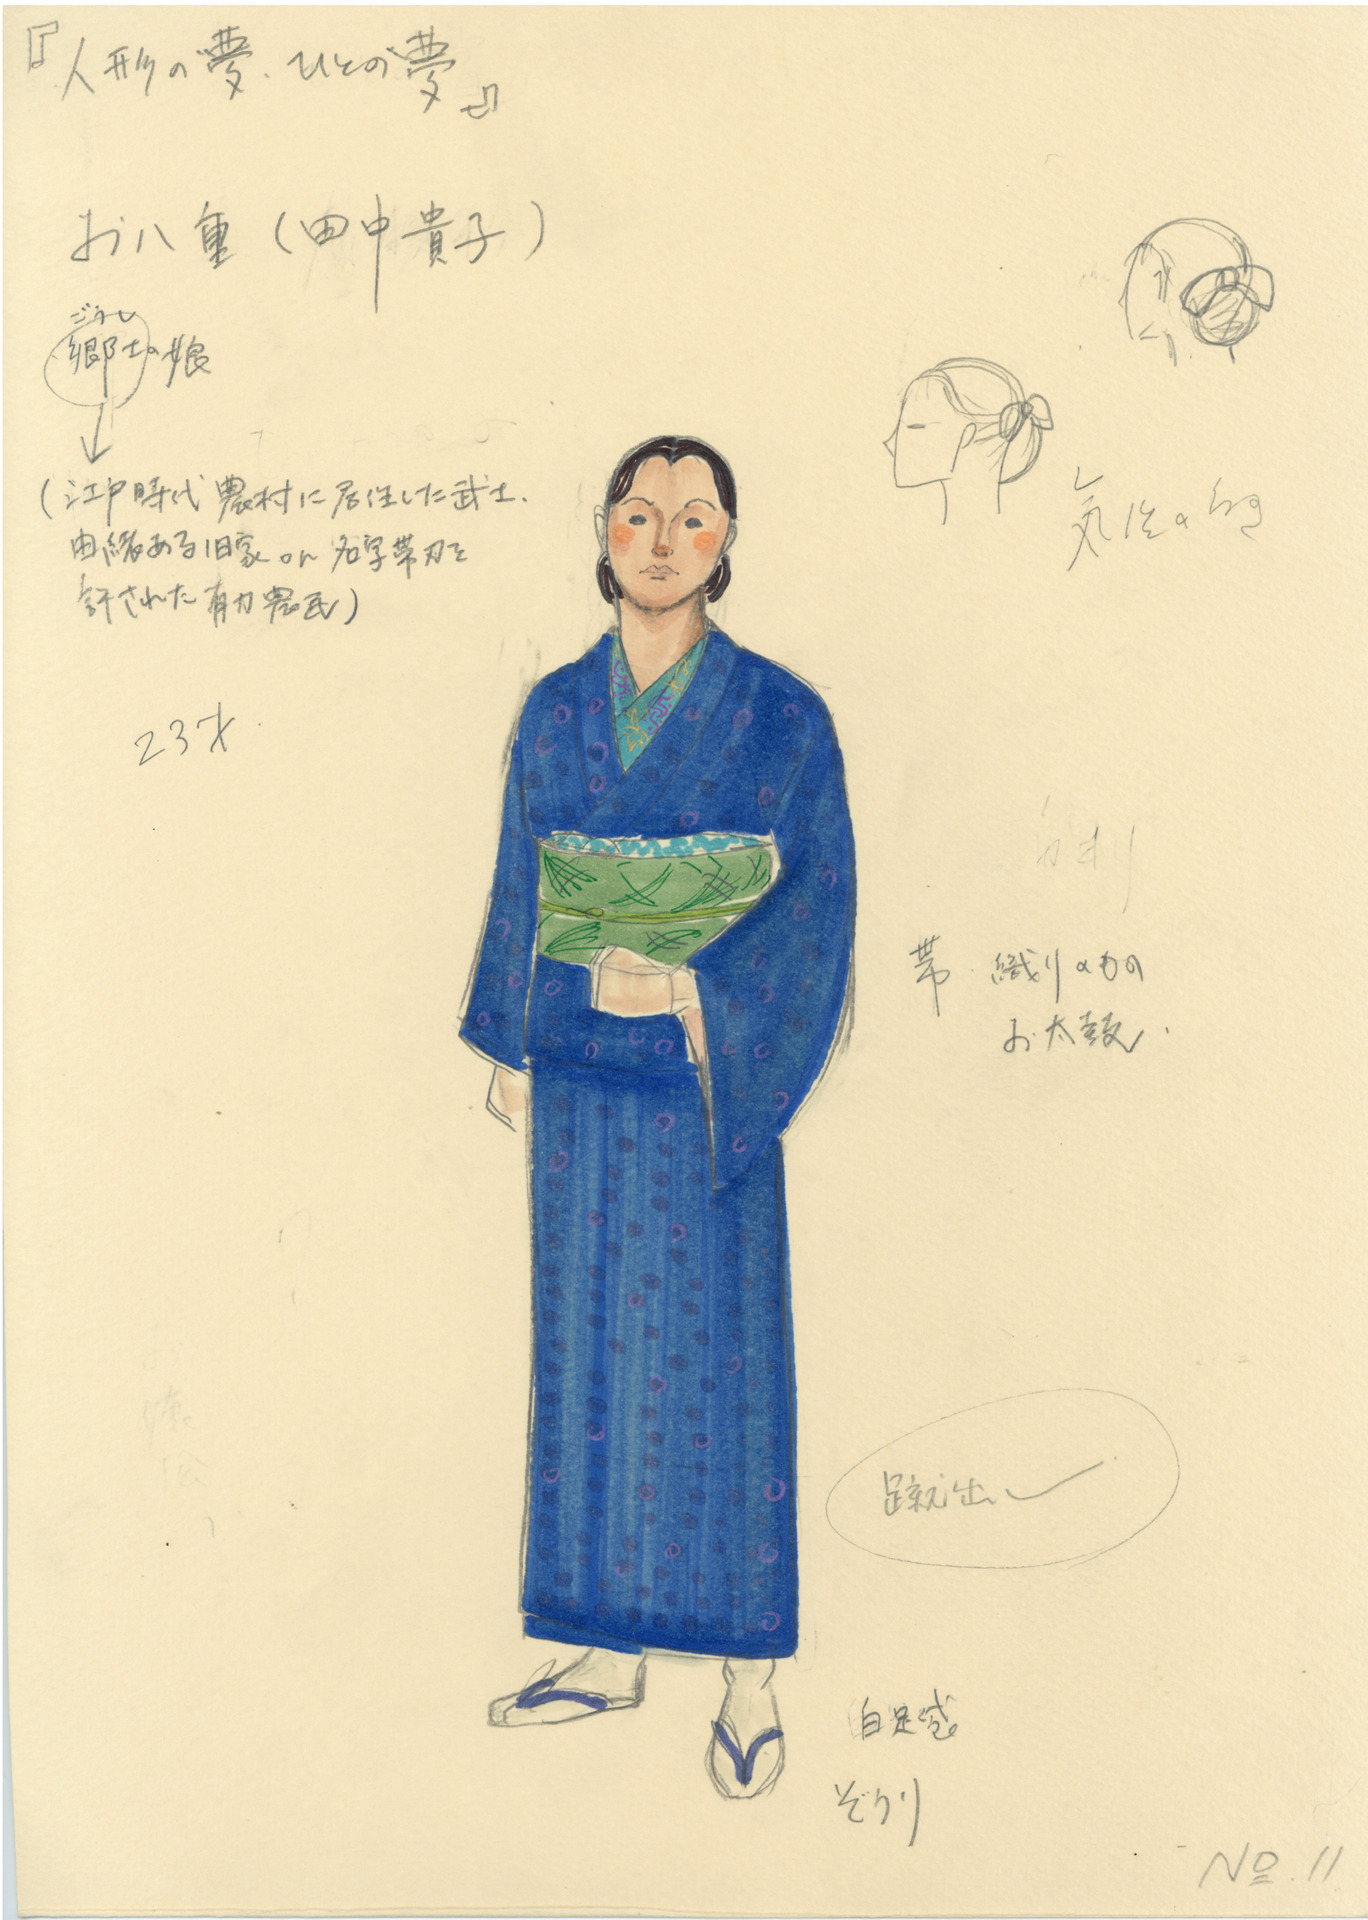 『人形の夢、ひとの夢』
お八重（田中貴子）
ごうし
郷士の娘
（江戸時代 農村に居住した武士、
由緒ある旧家 or 名字帯刀を
許された有力農民）
23才
気性の
帯 織りのもの
お太鼓
蹴出し
白足袋
ぞうり
No. 11